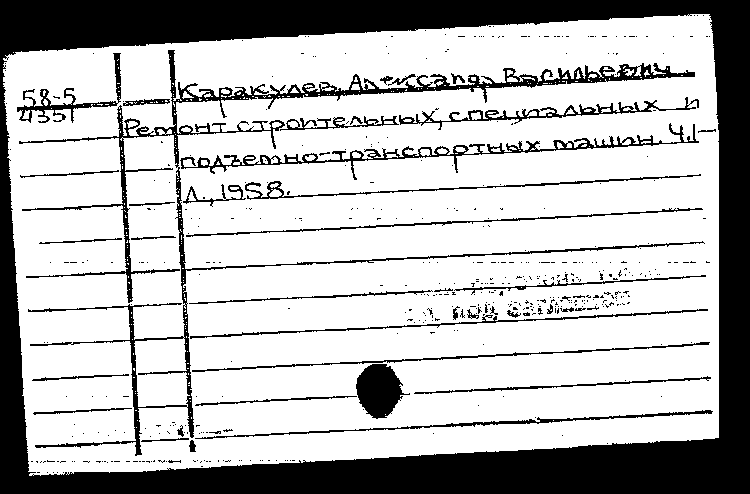 58-5
4351
Каракулев, Александр Васильевич.
Ремонт строительных, специальных и
подъемно-транспортных машин. Ч.1-
Л., 1958.
под заглавием